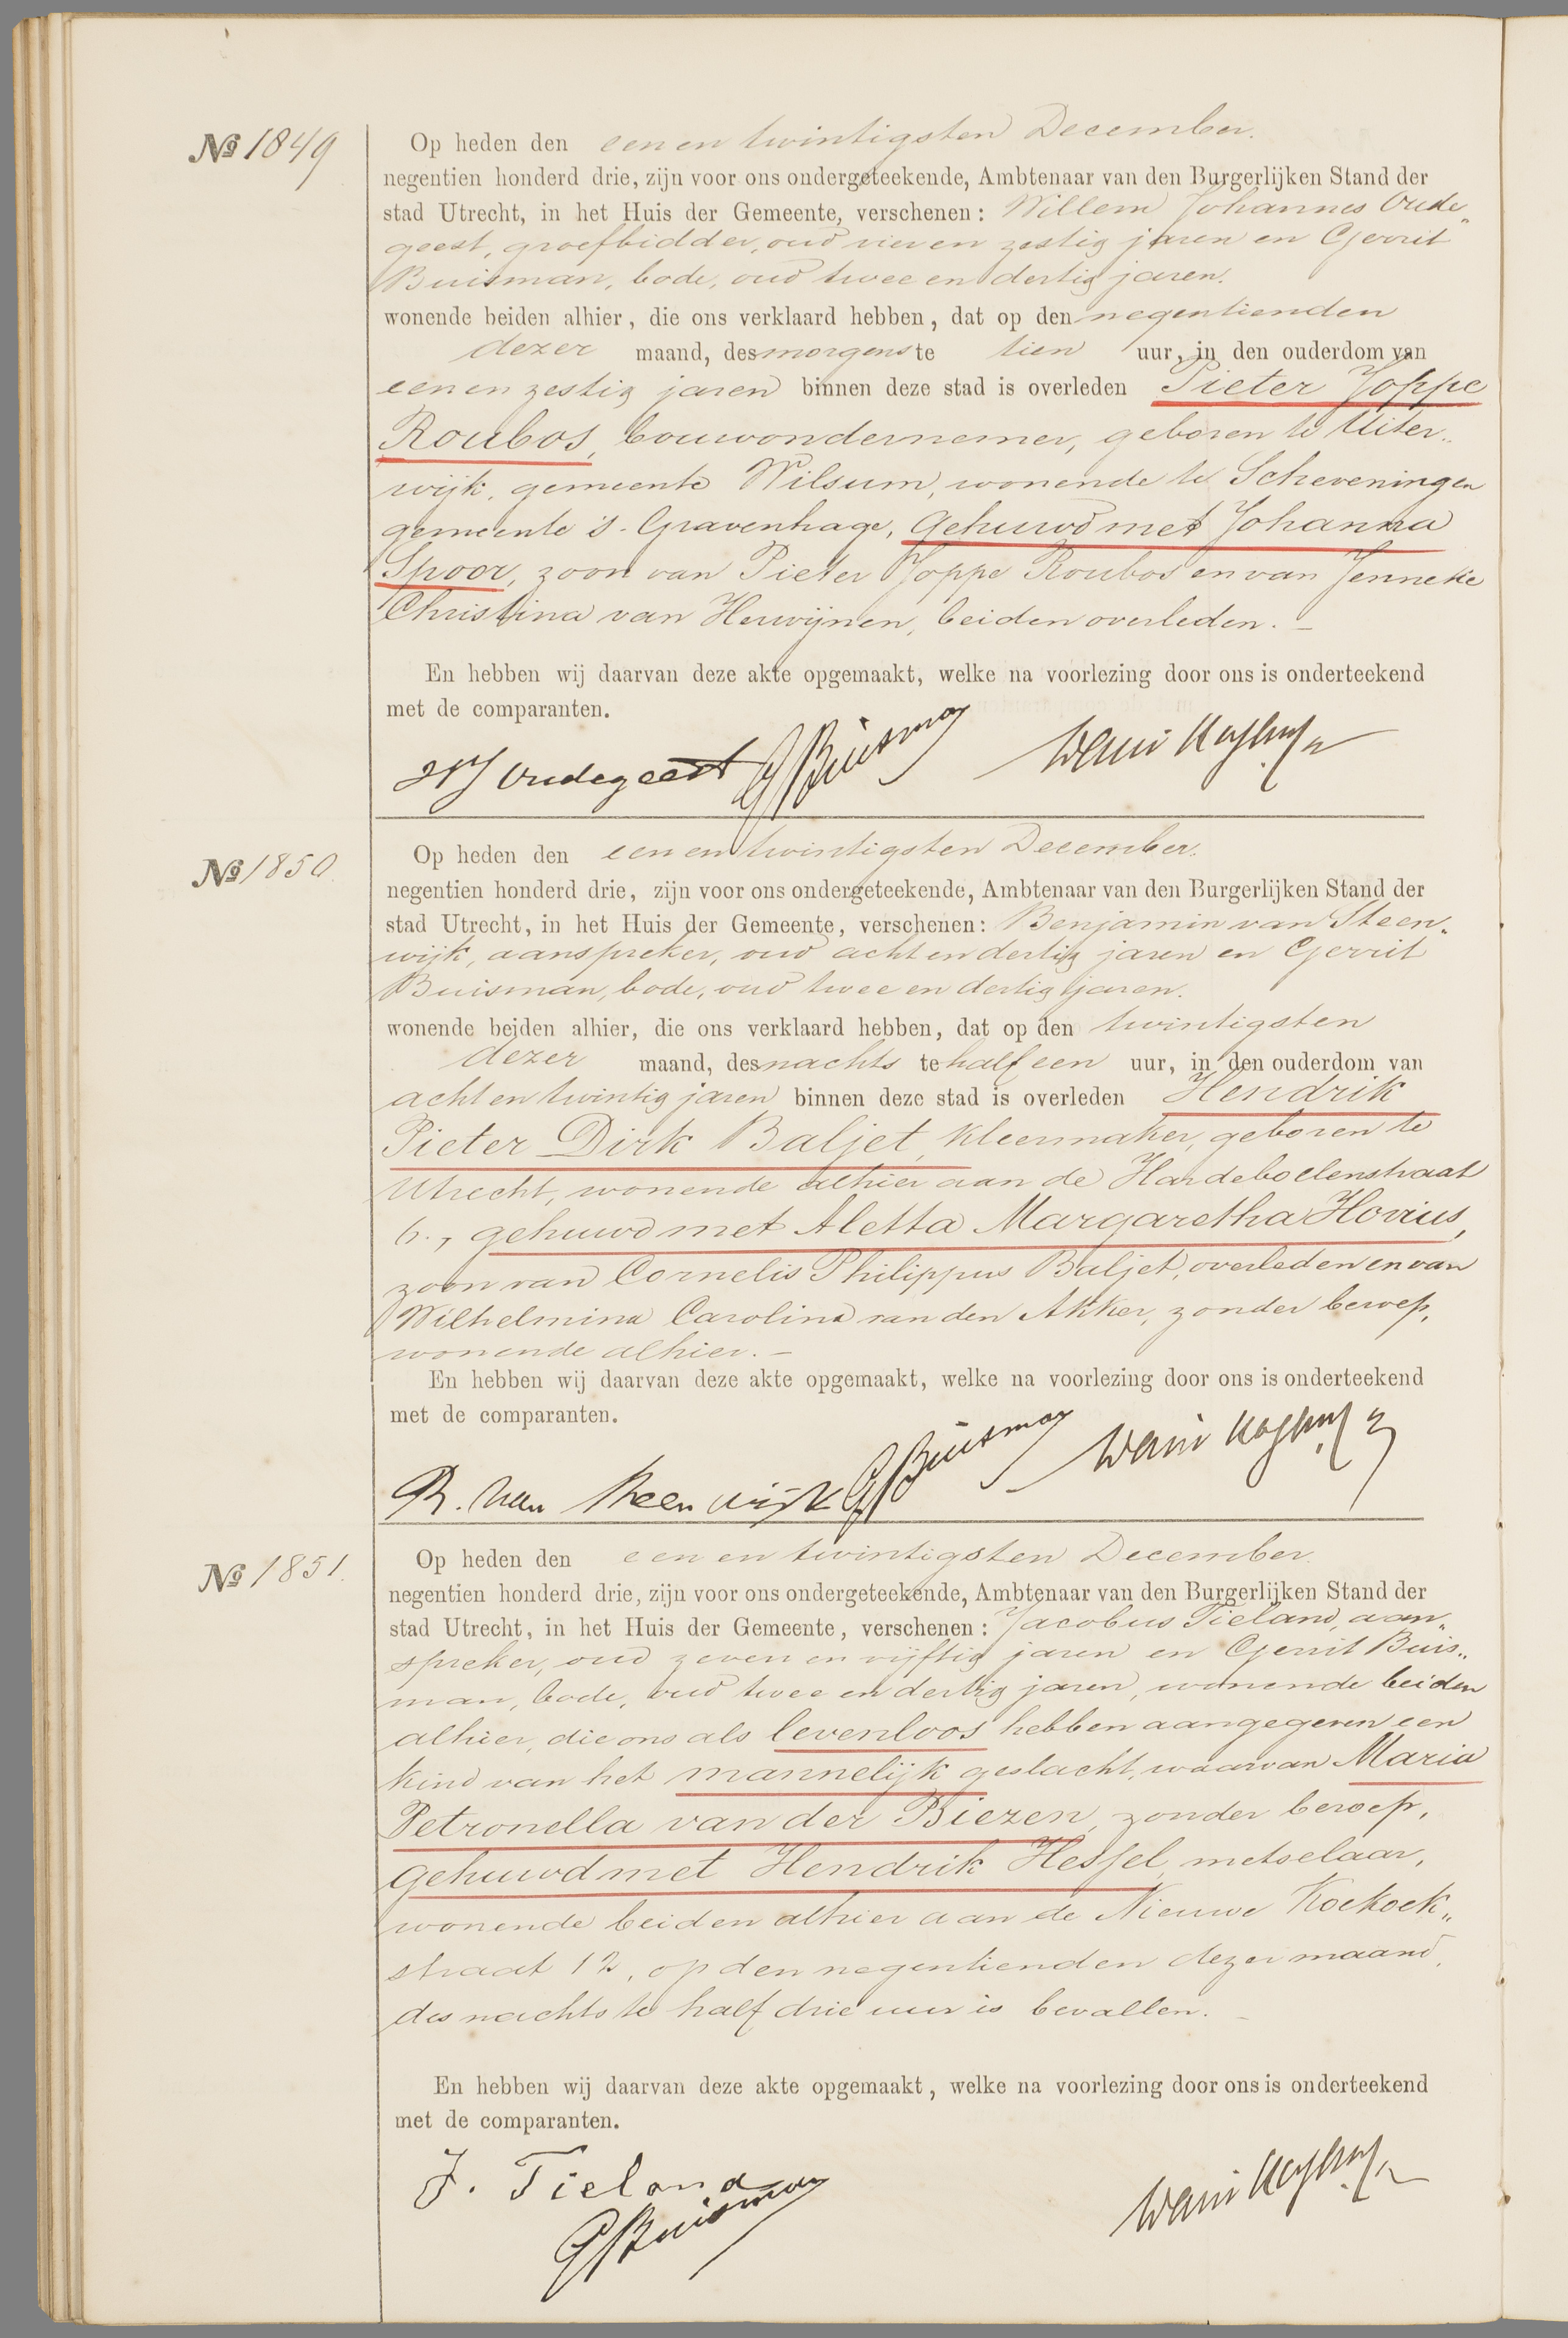 № 1849
Op heden den eenen twintigsten December.
negentien honderd drie, zijn voor ons ondergeteekende, Ambtenaar van den Burgerlijken Stand der
stad Utrecht, in het Huis der Gemeente, verschenen: Willem Johannes Oude„
geest, groefbidder, oud vier en zestig jaren en Gerrit
Buisman, bode, oud twee en dertig jaren.
wonende beiden alhier, die ons verklaard hebben, dat op den negentienden
dezer maand, des morgens te tien uur, in den ouderdom van
eenen zestig jaren binnen deze stad is overleden Pieter Joppe
Roubos, bouwondernemer, geboren te Uiter„
wijk, gemeente Wilsum, wonende te Scheveningen
gemeente 's-Gravenhage, gehuwd met Johanna
Spoor, zoon van Pieter Joppe Roubos en van Jenneke
Christina van Herwijnen, beiden overleden. –
En hebben wij daarvan deze akte opgemaakt, welke na voorlezing door ons is onderteekend
met de comparanten.
WJ Oudegeest GBuisman
№ 1850.
Op heden den eenen twintigsten December.
negentien honderd drie, zijn voor ons ondergeteekende, Ambtenaar van den Burgerlijken Stand der
stad Utrecht, in het Huis der Gemeente, verschenen: Benjamin van Steen„
wijk, aanspreker, oud acht en dertig jaren en Gerrit
Buisman, bode, oud twee en dertig jaren.
wonende beiden alhier, die ons verklaard hebben, dat op den twintigsten
dezer maand, des nachts te half een uur, in den ouderdom van
acht en twintig jaren binnen deze stad is overleden Hendrik
Pieter Dirk Baljet, kleermaker, geboren te
Utrecht, wonende alhier aan de Hardebollenstraat
6., gehuwd met Aletta Margaretha Hovius,
zoon van Cornelis Philippus Baljet, overleden en van
Wilhelmina Carolina van den Akker, zonder beroep,
wonende alhier. –
En hebben wij daarvan deze akte opgemaakt, welke na voorlezing door ons is onderteekend
met de comparanten.
B. van Steenwijk GBuisman
№ 1851.
Op heden den een en twintigsten December.
negentien honderd drie, zijn voor ons ondergeteekende, Ambtenaar van den Burgerlijken Stand der
stad Utrecht, in het Huis der Gemeente, verschenen: Jacobus Tieland, aan„
spreker, oud zeven en vijftig jaren en Gerrit Buis„
man, bode, oud twee en dertig jaren, wonende beiden
alhier, die ons als levenloos hebben aangegeven een
kind van het mannelijk geslacht, waarvan Maria
Petronella van der Biezen, zonder beroep,
gehuwd met Hendrik Hessel, metselaar,
wonende beiden alhier aan de Nieuwe Koekoek„
straat 12, op den negentienden dezer maand,
des nachts te half drie uur is bevallen. –
En hebben wij daarvan deze akte opgemaakt, welke na voorlezing door ons is onderteekend
met de comparanten.
J. Tieland
GBuisman